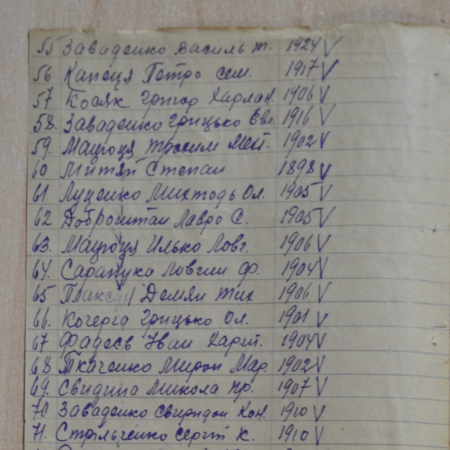 55 Заваденко Василь т. 1924 V
56 Капеця Петро сем. 1917 V
57 Косяк Григор Харлам. 1906 V
58. Заваденко Грицько Евг. 1916 V
59. Мацюця Максим Мей. 1902 V
60 Митяй Степан 1898 V
61 Луценко Миктодь Ол. 1905 V
62 Доброштан Лавро С. 1905 V
63. Мацюця Илько Ловг. 1906 V
64. Сарапука Ловгин Ф. 1904 V
65 Демян 1906 V
66. Когерга Грицько Ол. 1901 V
67 Фадеєв Иван Харит. 1904 V
68 Ткаченко Мирон Мар 1902 V
69. Свидина Микола Пр. 1907 V
70 Заваденко Свиридон Кон. 1910 V
71. Стрільченко Сергій К. 1910 V